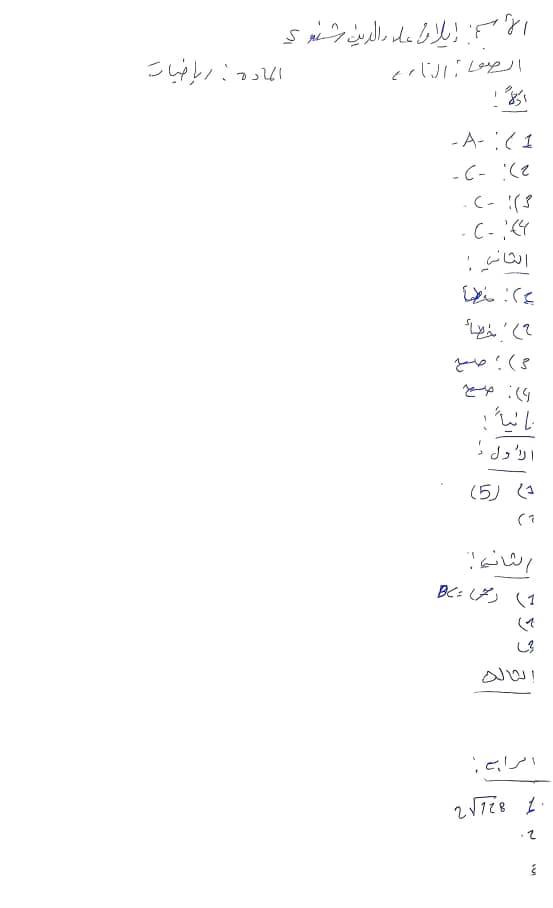 الأسم: إيلاف علاء الدين
الصف: التاسع المادة: رياضيات
أولاً:
1): -A-
2): -C-
3): -C-
4): -C-
الثاني:
1): خطأ
2): خطأ
3): صح
4): صح
ثانياً:
الأول:
1) (5)
2)
الثاني:
1) BC=
2)
3)
الثالث
الرابع:
1. 2√128
2.